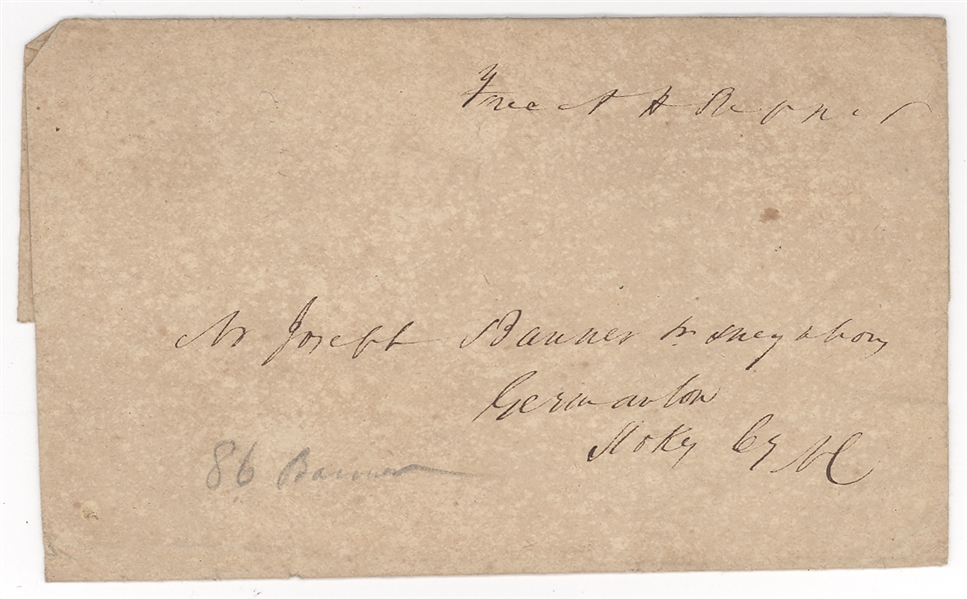 Free A H
Mr Joseph Banner & neighbors
Germanton
Stokes Cy NC
86 Banner